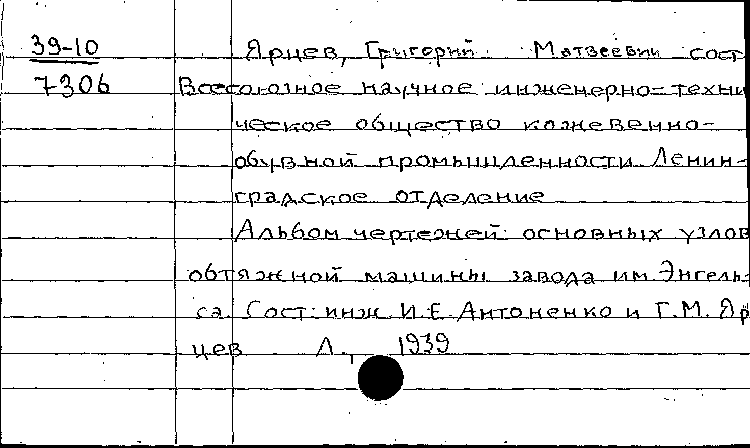 39-10 Ярцев, Григорий Матвеевич сост
7306 Всесоюзное научное инженерно=техни
ческое общество кожевенно-
обувной промышленности. Ленин-
градское отделение
Альбом чертежей основных узлов
обтяжной машины завода им. Энгель-
са. Сост: инж И.Е. Антоненко и Г.М. Яр
цев Л., 1939